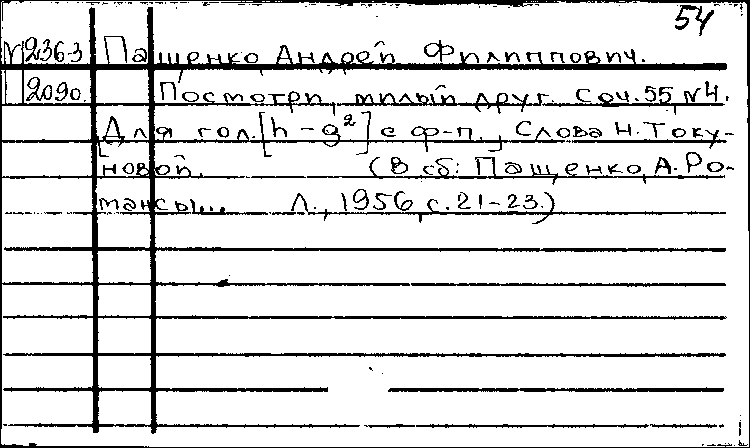 54
N 2363 Пащенко, Андрей Филиппович.
2090 Посмотри, милый друг. Соч. 55, N4.
[Для гол. [h - g²] с ф-п.] Слова Н. Току-
новой. (В сб: Пащенко, А. Ро-
мансы... Л., 1956, с. 21-23.)